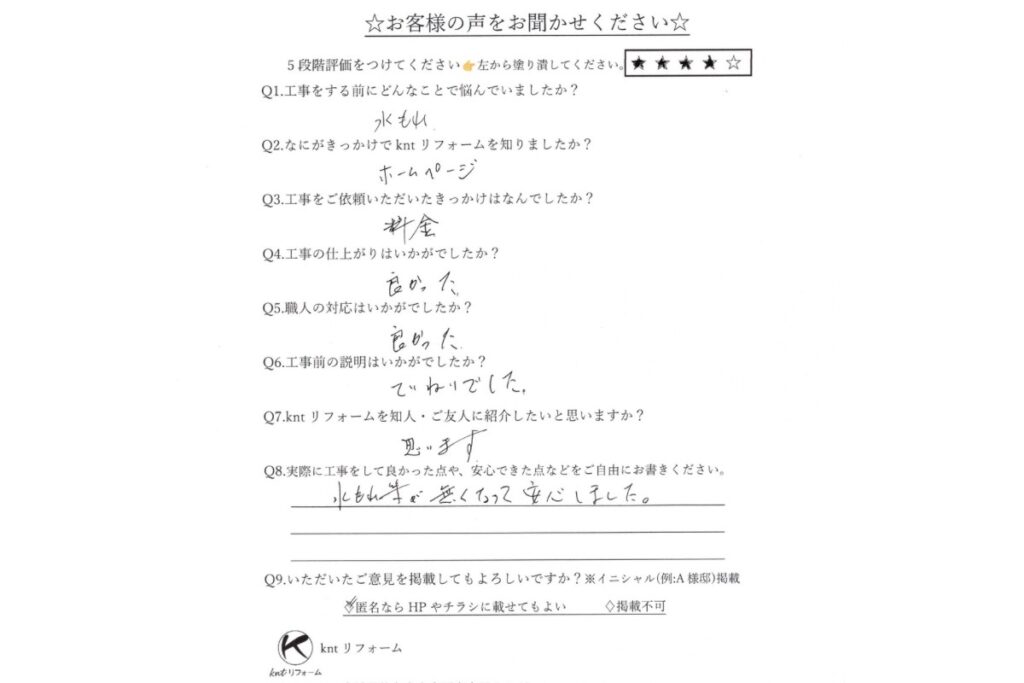 ☆お客様の声をお聞かせください☆
5段階評価をつけてください👉左から塗り潰してください。 ★★★★☆
Q1.工事をする前にどんなことで悩んでいましたか？
水もれ
Q2.なにがきっかけで knt リフォームを知りましたか？
ホームページ
Q3.工事をご依頼いただいたきっかけはなんでしたか？
料金
Q4.工事の仕上がりはいかがでしたか？
良かった
Q5.職人の対応はいかがでしたか？
良かった
Q6.工事前の説明はいかがでしたか？
ていねいでした。
Q7.knt リフォームを知人・ご友人に紹介したいと思いますか？
思います
Q8.実際に工事をして良かった点や、安心できた点などをご自由にお書きください。
水もれ等が無くなって安心しました。
Q9.いただいたご意見を掲載してもよろしいですか？※イニシャル(例:A 様邸)掲載
匿名なら HP やチラシに載せてもよい ◇掲載不可
knt リフォーム
knt リフォーム